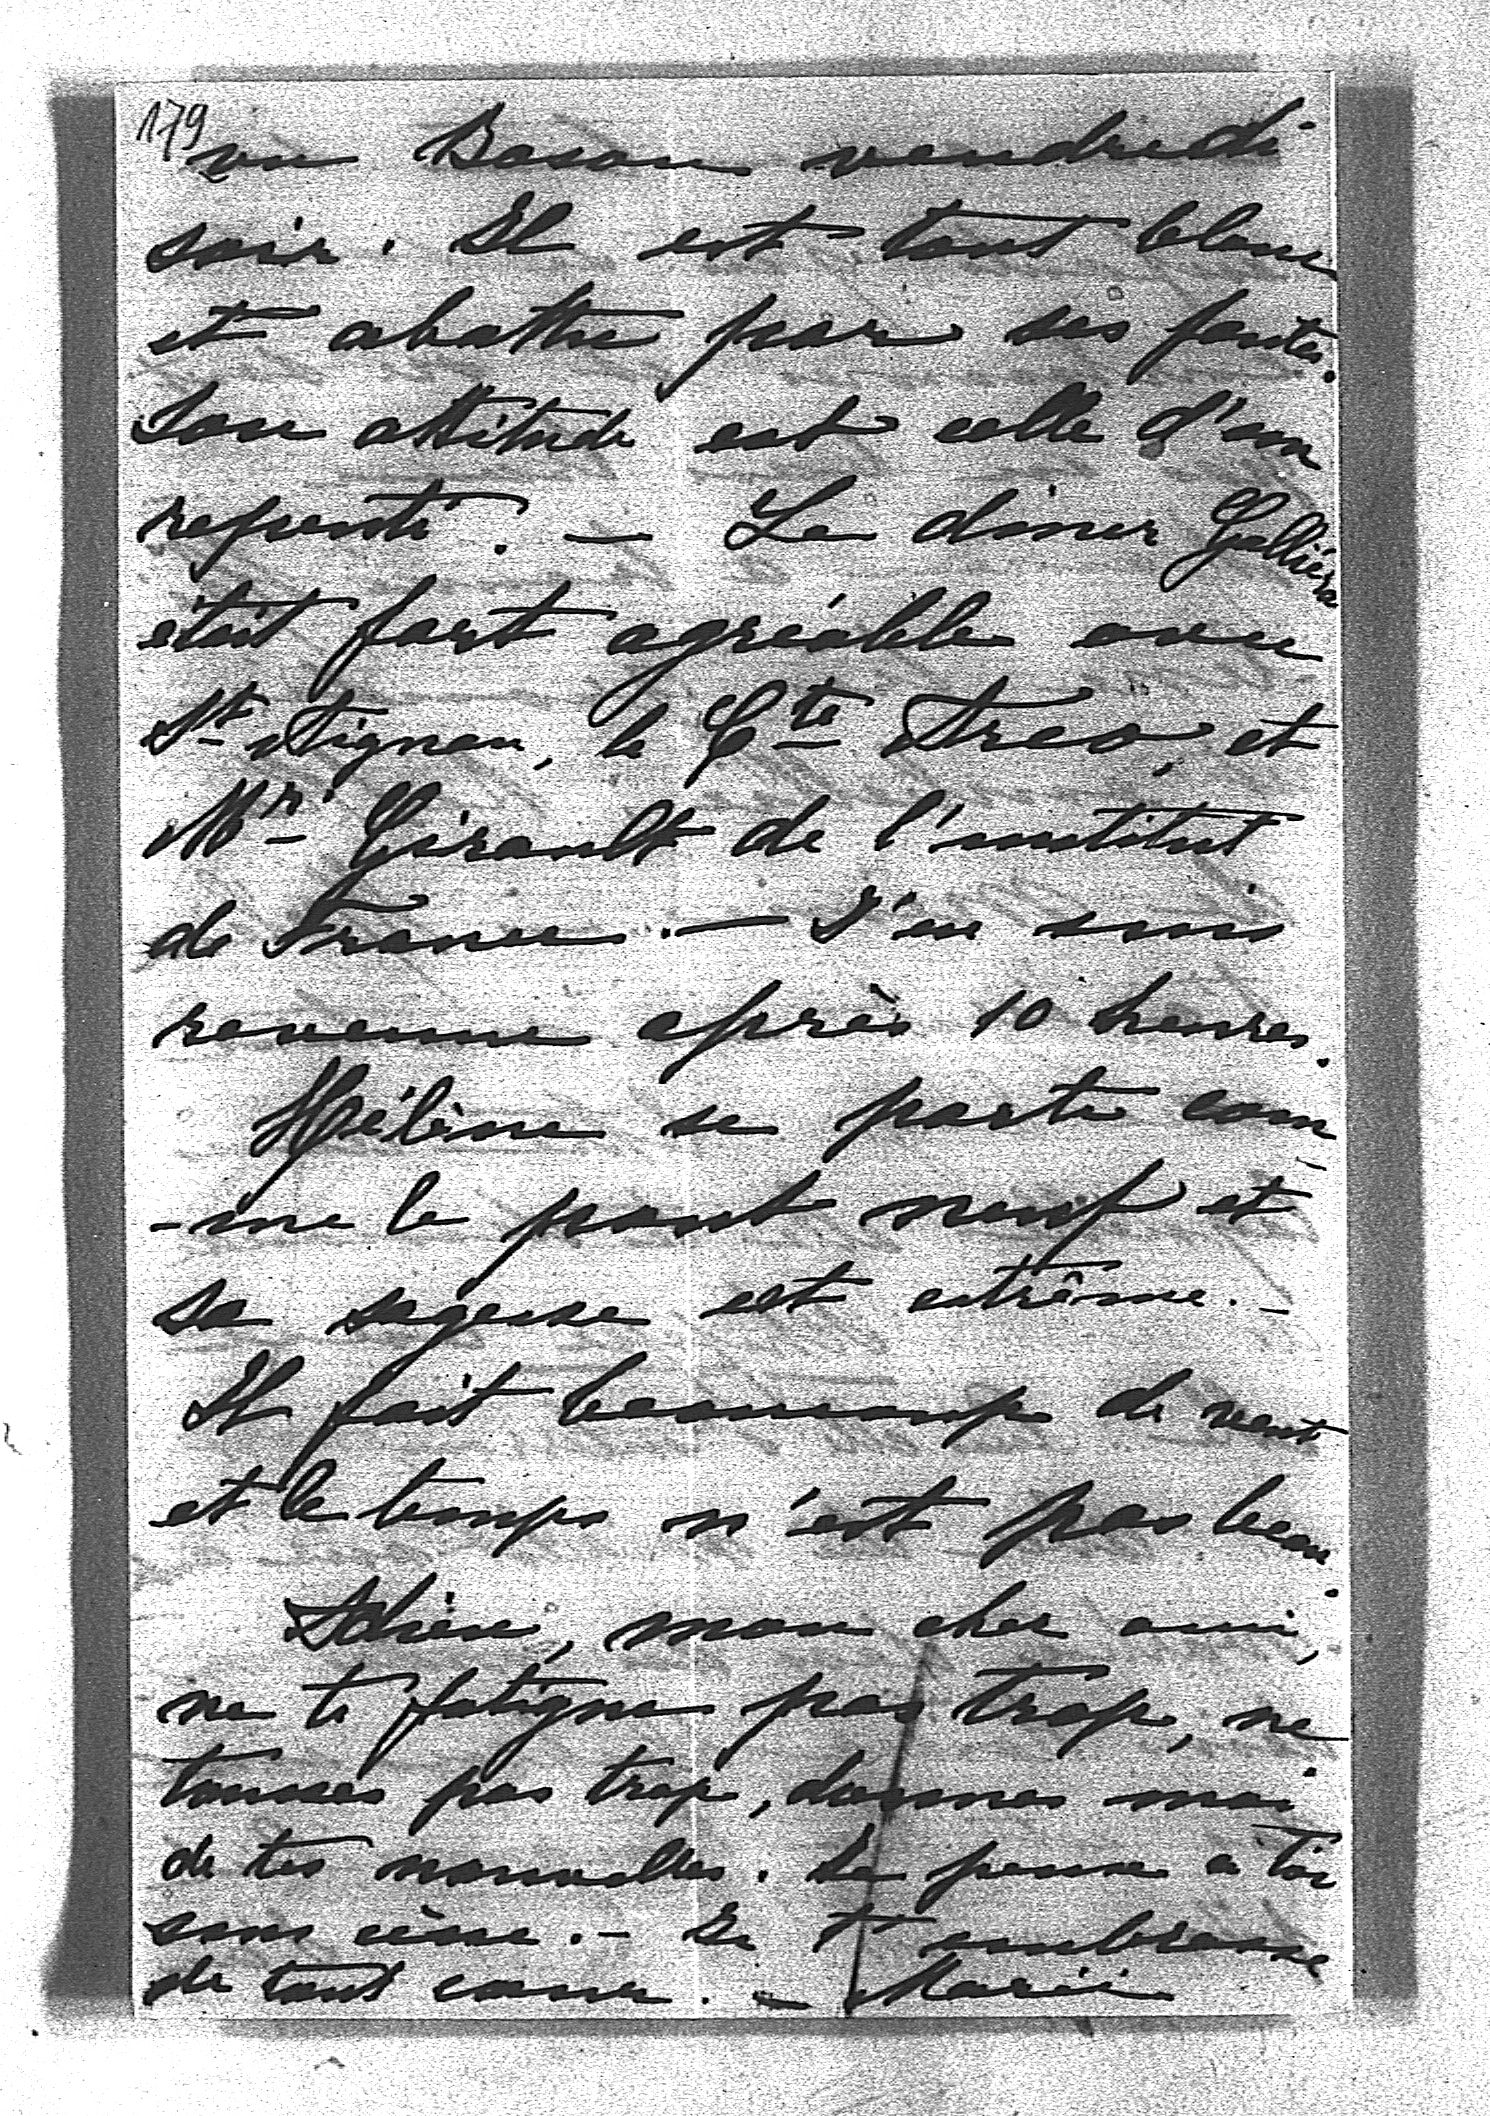 179
vu Boson vendredi
soir. Il est tout blanc
et abattu par ses fautes.
Son attitude est celle d'un
repenti. — Le diner Galliéra
était fort agréable avec
St Aignan, le Cte Arco, et
Mr Girault de l'institut
de France. — J'en suis
revenue après 10 heures.
Hélène se porte com-
-me le pont neuf et
sa sagesse est extrême. –
Il fait beaucoup de vent
et le temps n'est pas beau.
Adieu, mon cher ami,
ne te fatigue pas trop, ne
tousses pas trop, donnes moi
de tes nouvelles. Je pense à toi
sans cesse. – Je t'embrasse
de tout cœur. — Marie